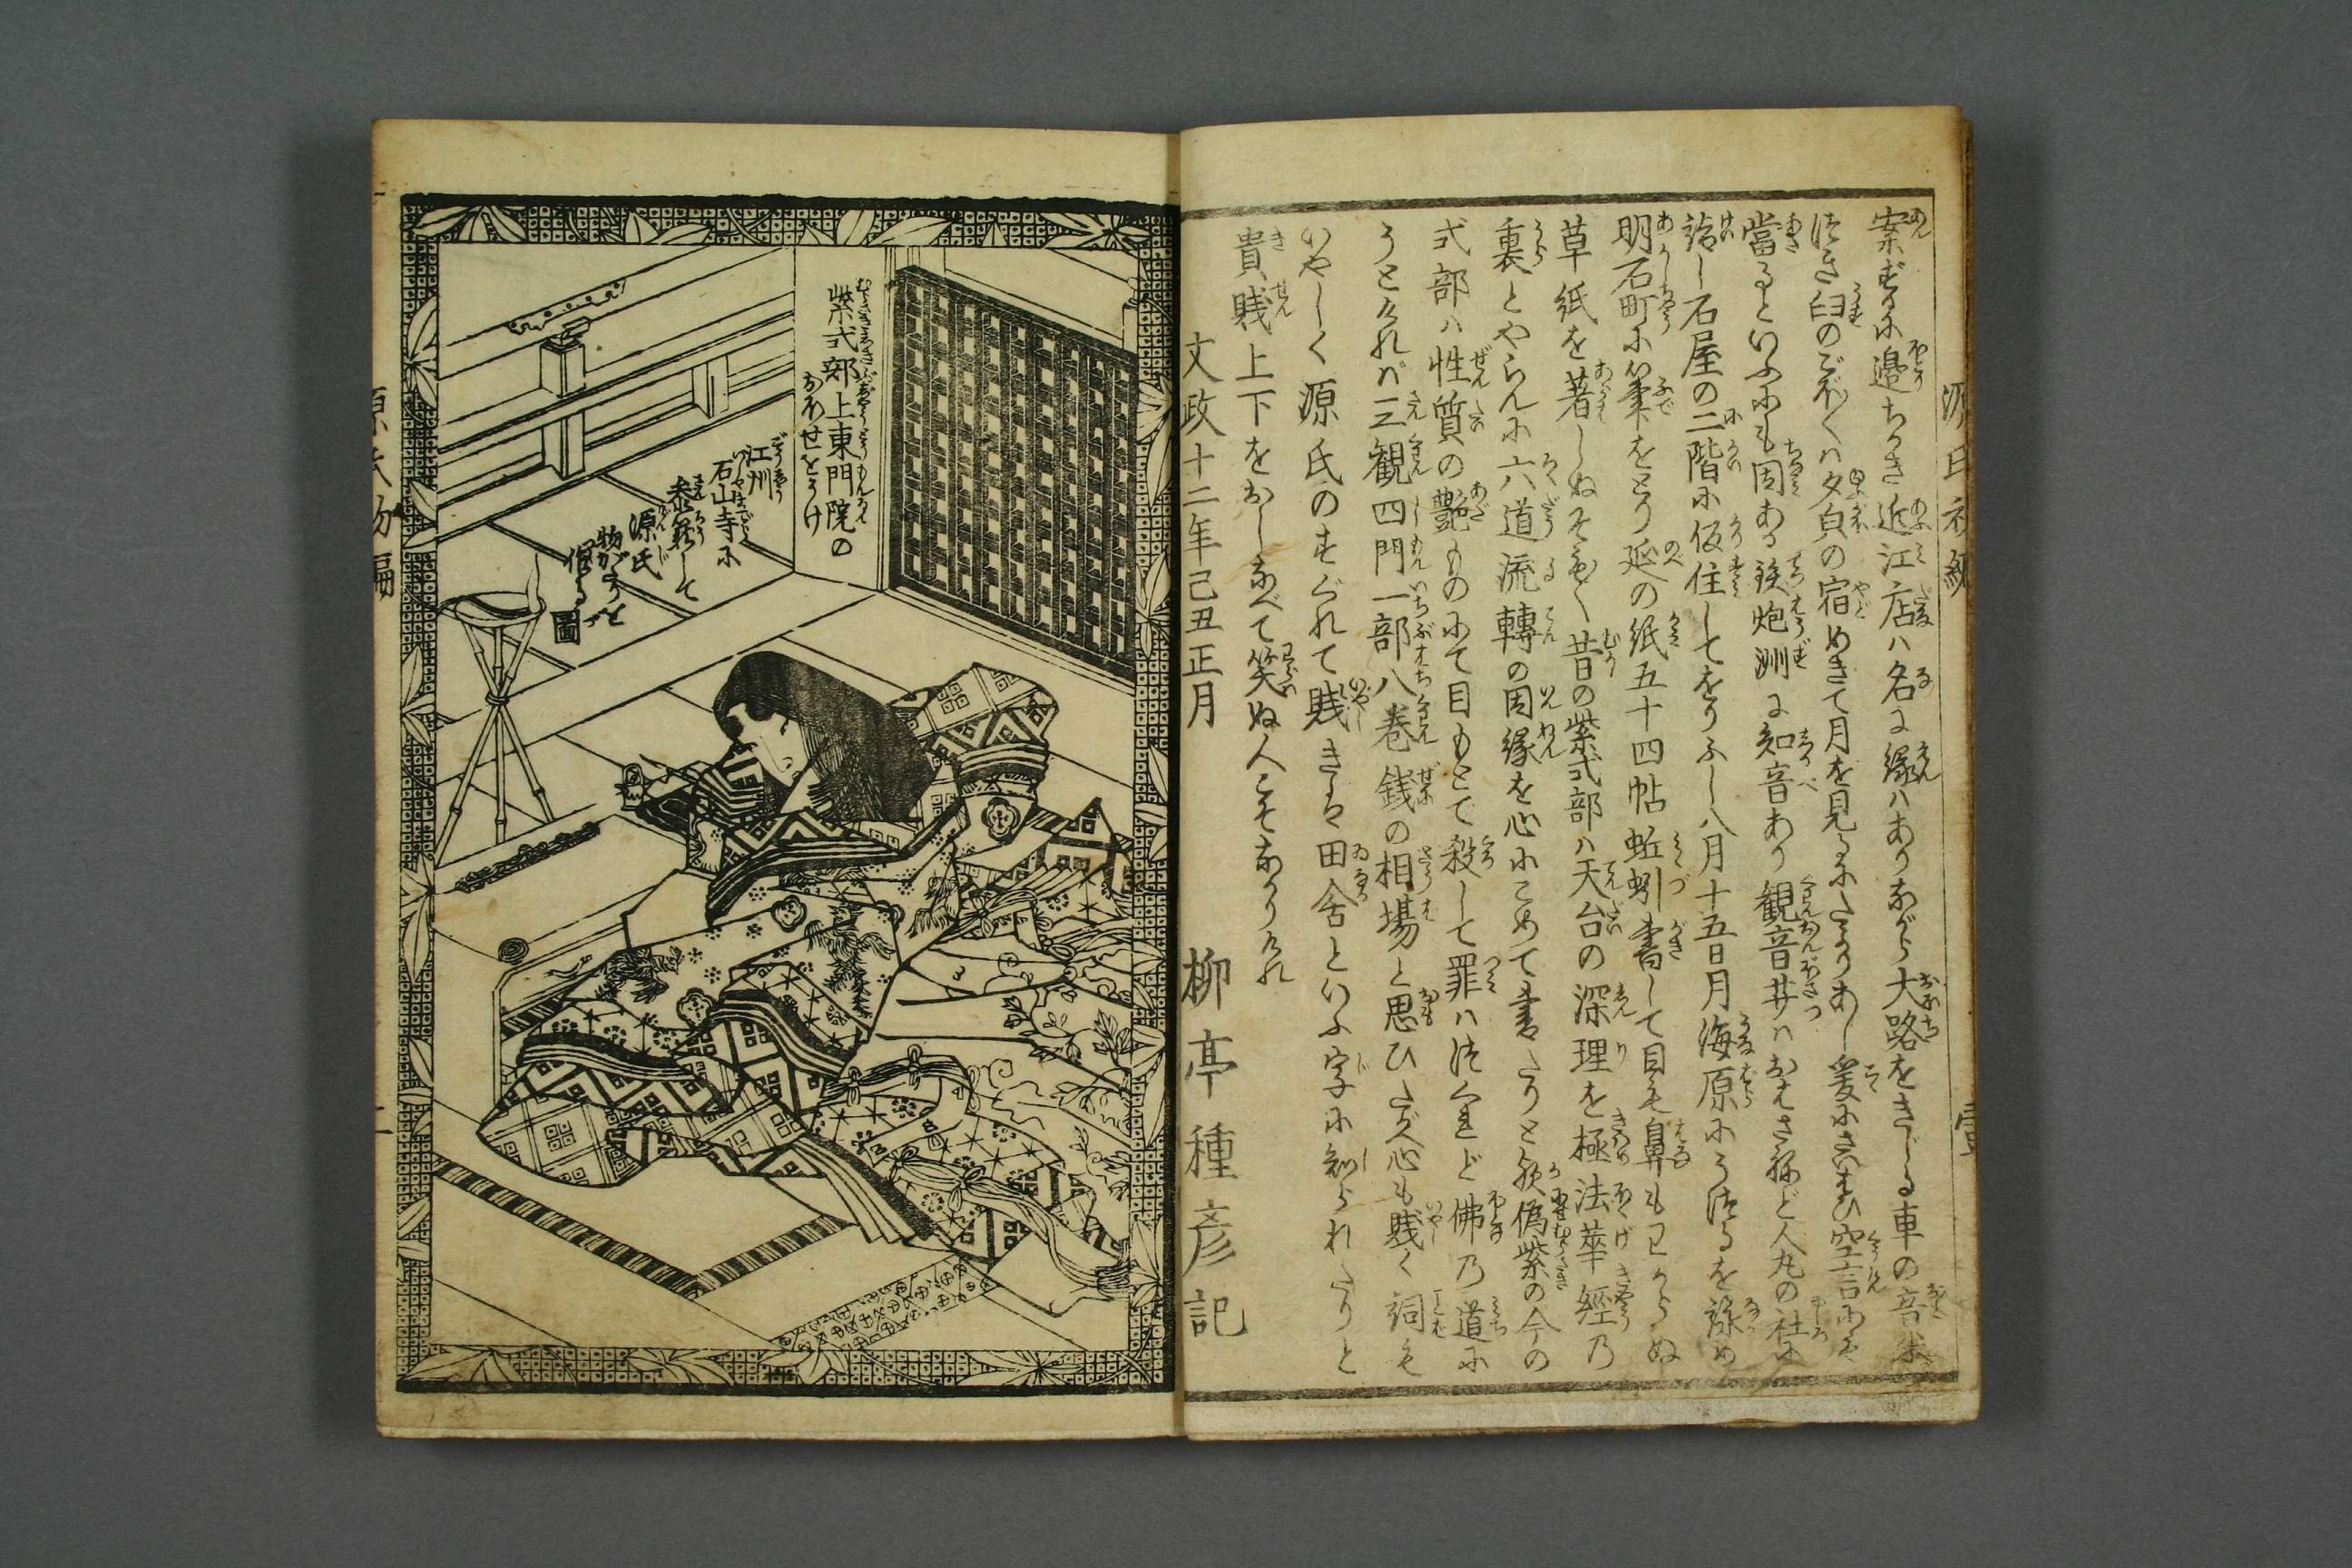 源氏初編
壹
案ずるに邉ちかき近江店ハ名に縁ハありながら大路をきしる車の音
臼のごほ〱ハ夕㒵の宿めきて月を見るにたよりあし爰にさいはひ空言
當るといふにも因ある鉄炮洲に知音あり観音井ハおはさねど人丸の社に
詣し石屋の二階に仮住してをりふし八月十五日月海原にうつるを詠め
明石町に筆をとり延の紙五十四帖蚯蚓書して目も鼻もわからぬ
草紙を著しぬそも〱昔の紫式部ハ天台の深理を極法華經乃
裏とやらんに六道流轉の因縁を心にこめて書たりとか偽紫の今の
式部ハ性質の艶ものにて目もとで殺して罪ハつくれど佛乃道に
うとければ三観四門一部八巻銭の相場と思ひたがへ心も賤く詞も
いやしく源氏のすぐれて賤きは田舎といふ字に知られたりと
貴賤上下をおしなべて笑ぬ人こそなかりけれ
文政十二年己丑正月
柳亭種彦記
紫式部上東門院の
おほせをうけ
江州
石山寺に
参籠して
源氏
物がたりを
作る
圖
源氏初編
二